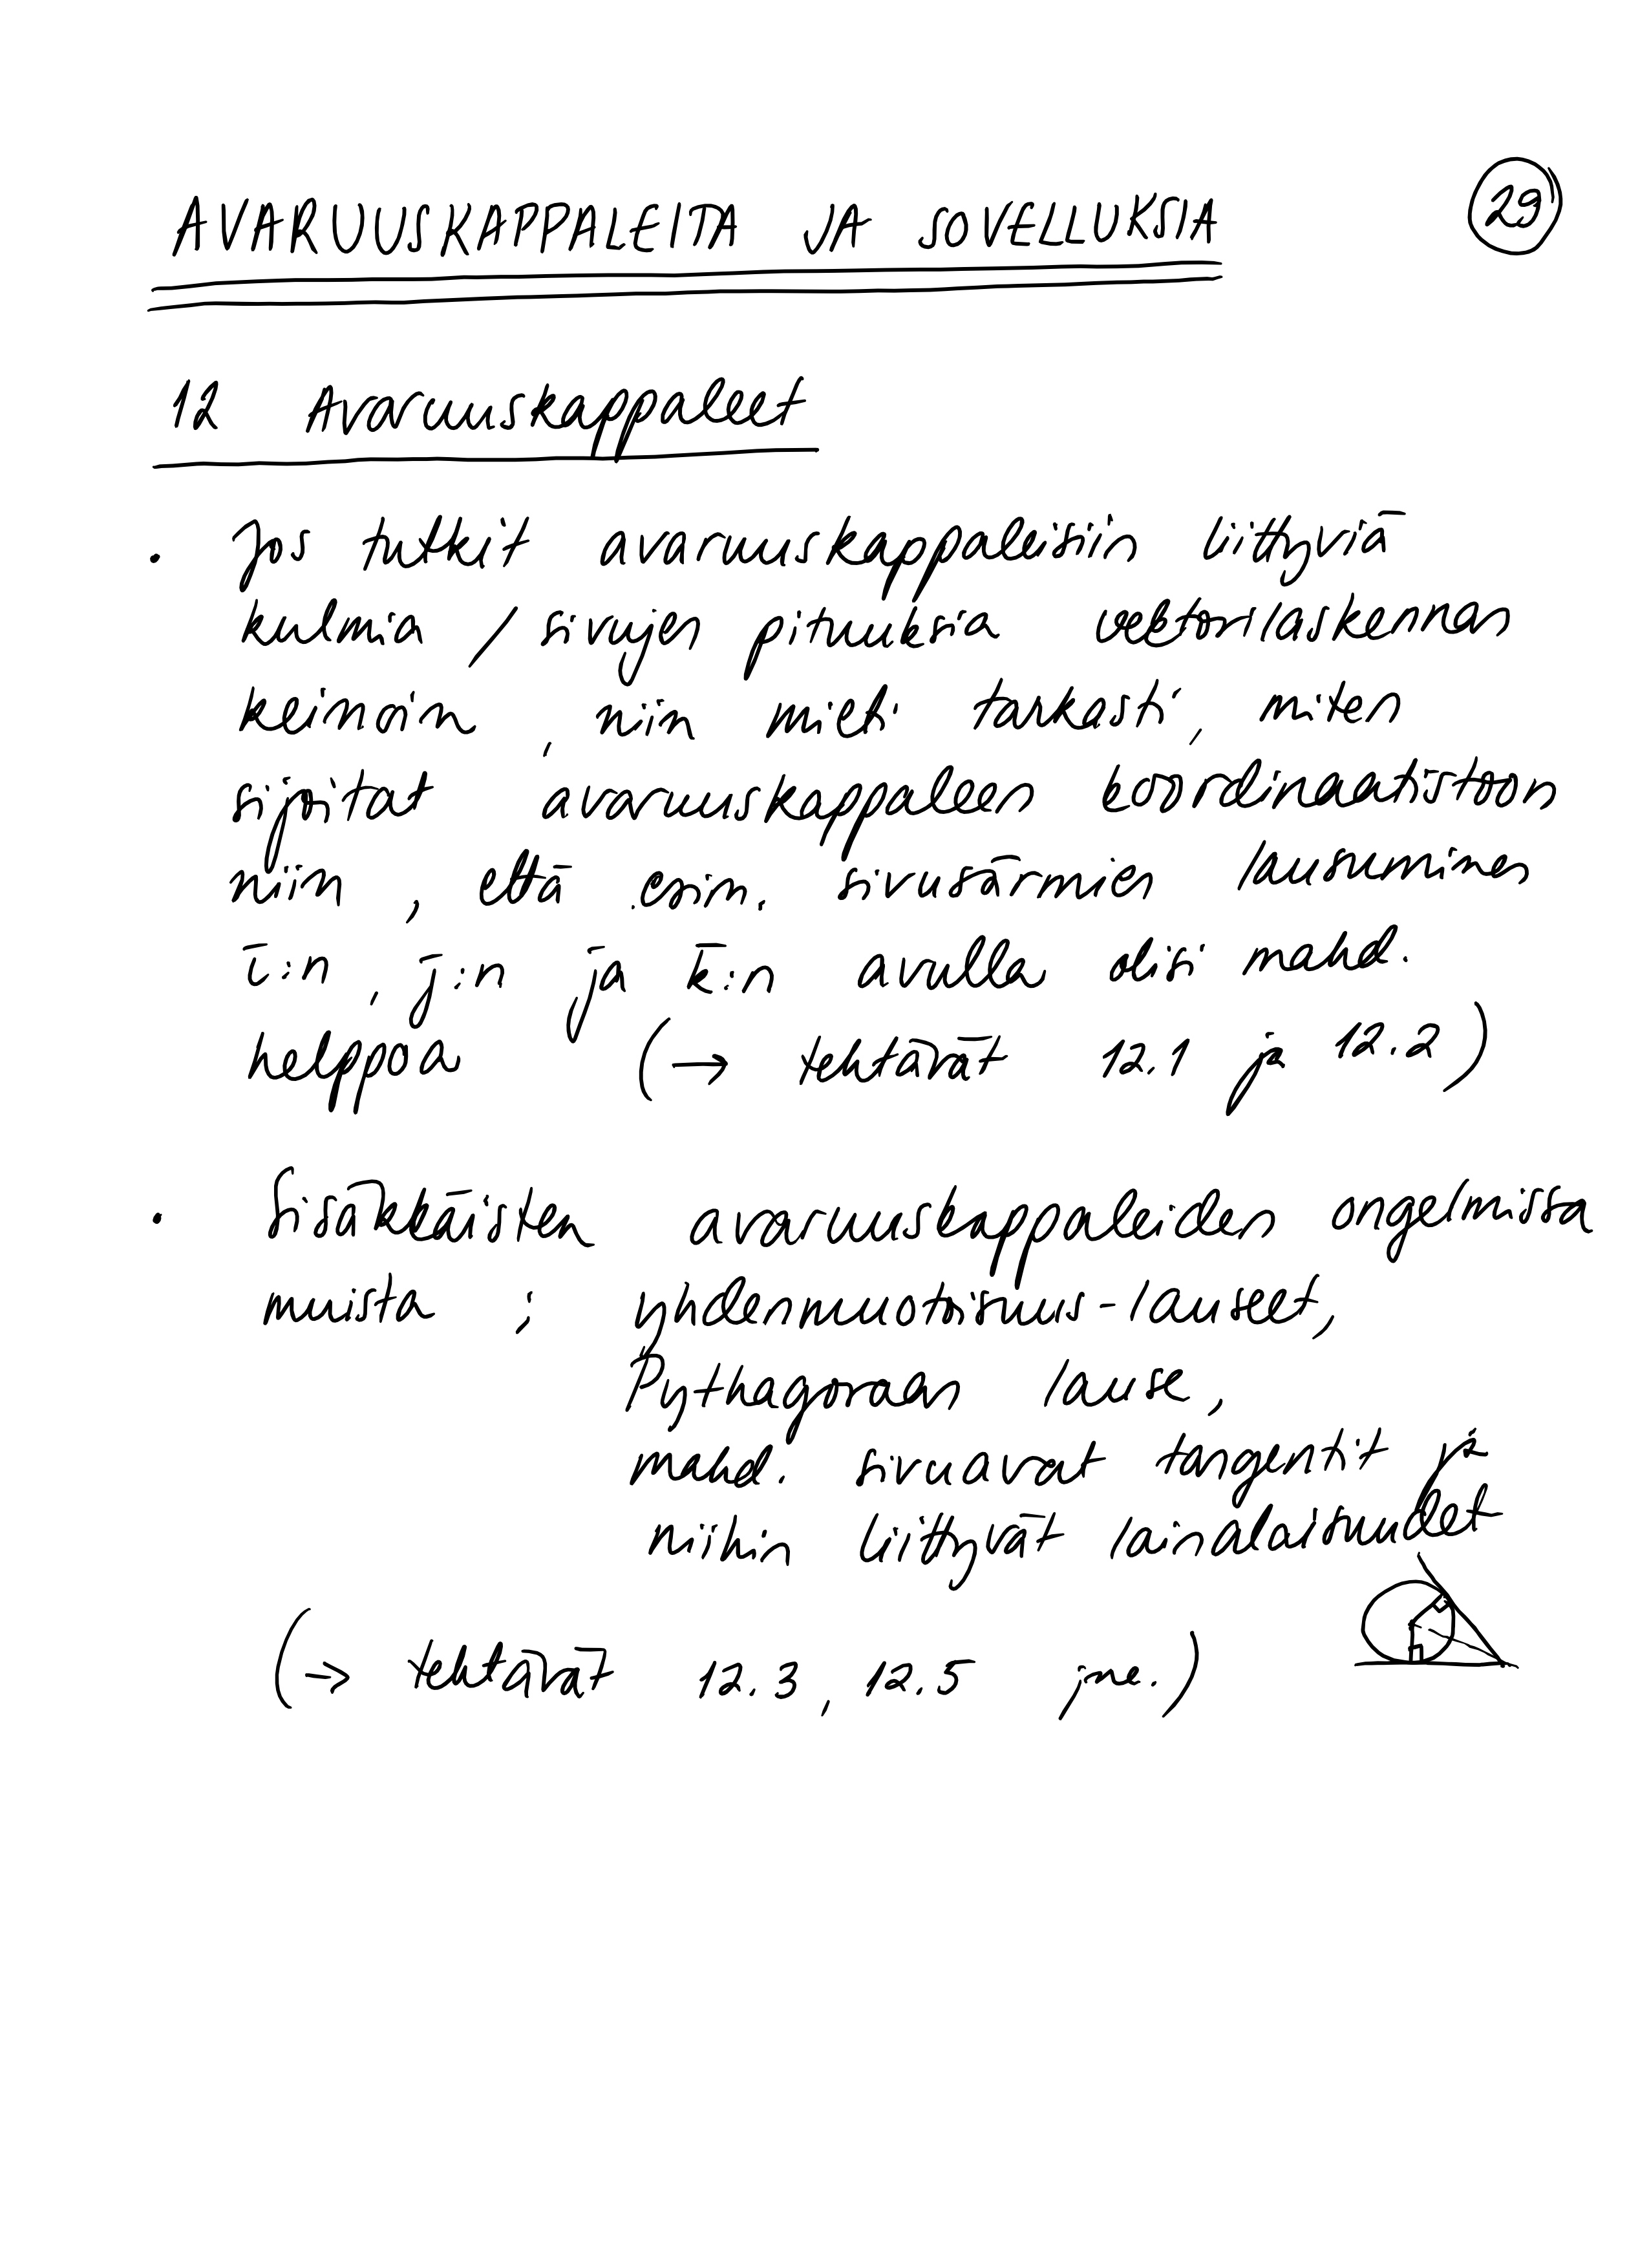 AVARUUSKAPPALEITA JA SOVELLUKSIA
29
12 Avaruuskappaleet
• Jos tutkit avaruuskappaleisiin liittyviä
kulmia / sivujen pituuksia vektorilaskennan
keinoin, niin mieti tarkasti, miten
sijoitat avaruuskappaleen koordinaatistoon
niin, että esim. sivusärmien lausuminen
i̅:n, j̅:n ja k̅:n avulla olisi mahd.
helppoa (→ tehtävät 12.1 ja 12.2)
• Sisäkkäisten avaruuskappaleiden ongelmissa
muista : yhdenmuotoisuus-lauseet,
Pythagoraan lause,
mahd. sivuavat tangentit ja
niihin liittyvät lainalaisuudet
(→ tehtävät 12.3, 12.5 jne.)